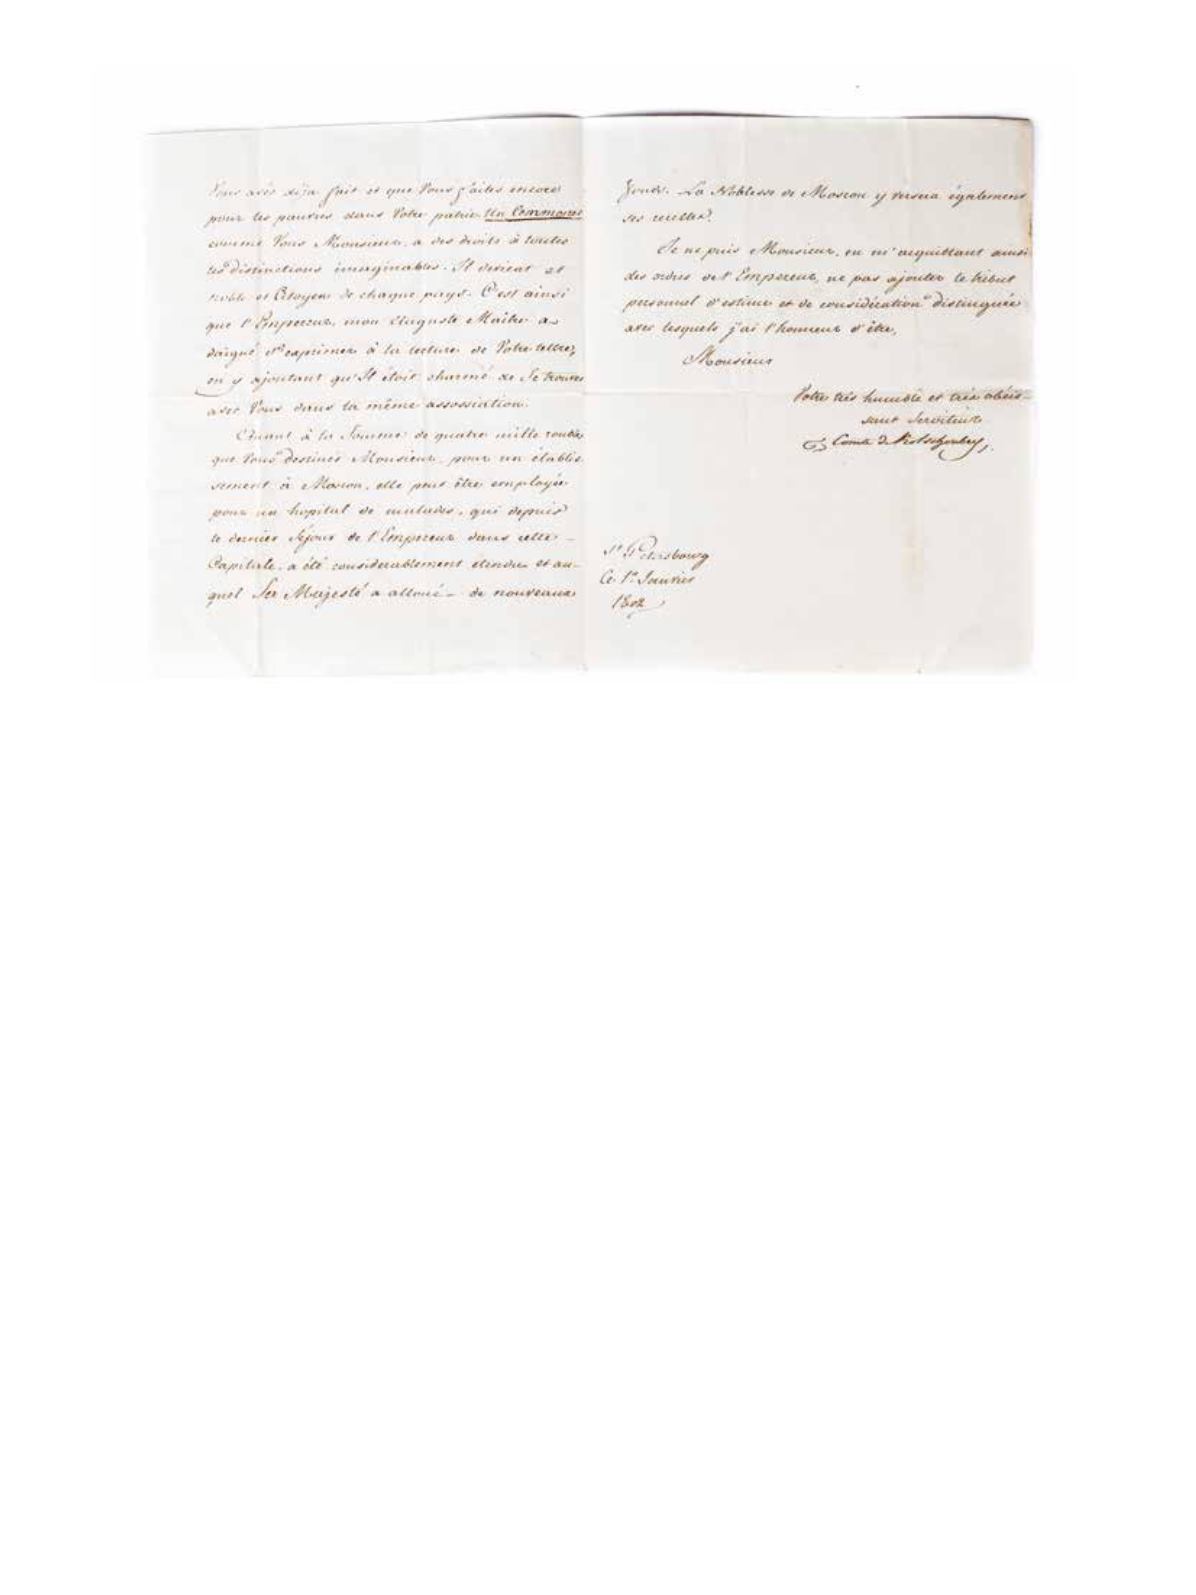 Vous avés déja fait et que Vous faites encore
pour les pauvres dans Votre patrie. Un Commoner
comme Vous Monsieur, a des droits à toutes
les distinctions imaginables. Il devient et
noble et Citoyen de chaque pays. C'est ainsi
que l'Empereur, mon Auguste Maître a
daigné s'exprimer à la lecture de Votre lettre,
en y ajoutant qu'Il étoit charmé de Se trouver
avec Vous dans la même assossiation.
Quant à la Somme de quatre mille roubles
que Vous destinés Monsieur, pour un établis
sement à Moscou, elle peut être employée
pour un hopital de malades, qui depuis
le dernier Séjour de l'Empereur dans cette
Capitale, a été considerablement étendu et au-
quel Sa Majesté a alloué de nouveaux
fonds. La Noblesse de Moscou y versera également
ses
Je ne puis Monsieur, en m'acquittant ainsi
des ordres de l'Empereur, ne pas ajouter le tribut
personnel d'estime et de considération distinguée
avec lesquels j'ai l'honneur d'être,
Monsieur
Votre très humble et très obéis-
sant Serviteur
Comte de Kotschoubey
St Petersbourg
Ce 1r Janvier
1802